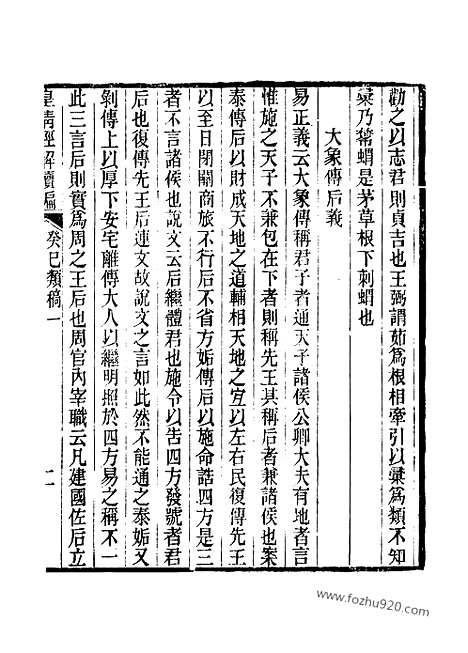 勸之以志君則貞吉也王弼謂茹爲根相牽引以彙爲類不知
彙乃棼蝟是茅草根下刺蝟也
大象傳后義
易正義云大象傳稱君子者通天子諸侯公卿大夫有地者言
惟施之天子不兼包在下者則稱先王其稱后者兼諸侯也案
泰傳后以財成天地之道輔相天地之宜以左右民復傳先王
以至日閉關商旅不行后不省方姤傳后以施命誥四方是三
者不言諸侯也說文云后繼體君也施令以告四方發號者君
后也復傳先王后連文故說文之言如此然不能通之泰姤又
剝傳上以厚下安宅離傳大人以繼明照於四方易之稱不一
此三言后則實爲周之王后也周官內宰職云凡建國佐后立
皇清經解續編
癸巳類稿一
二
www.fozhu920.com